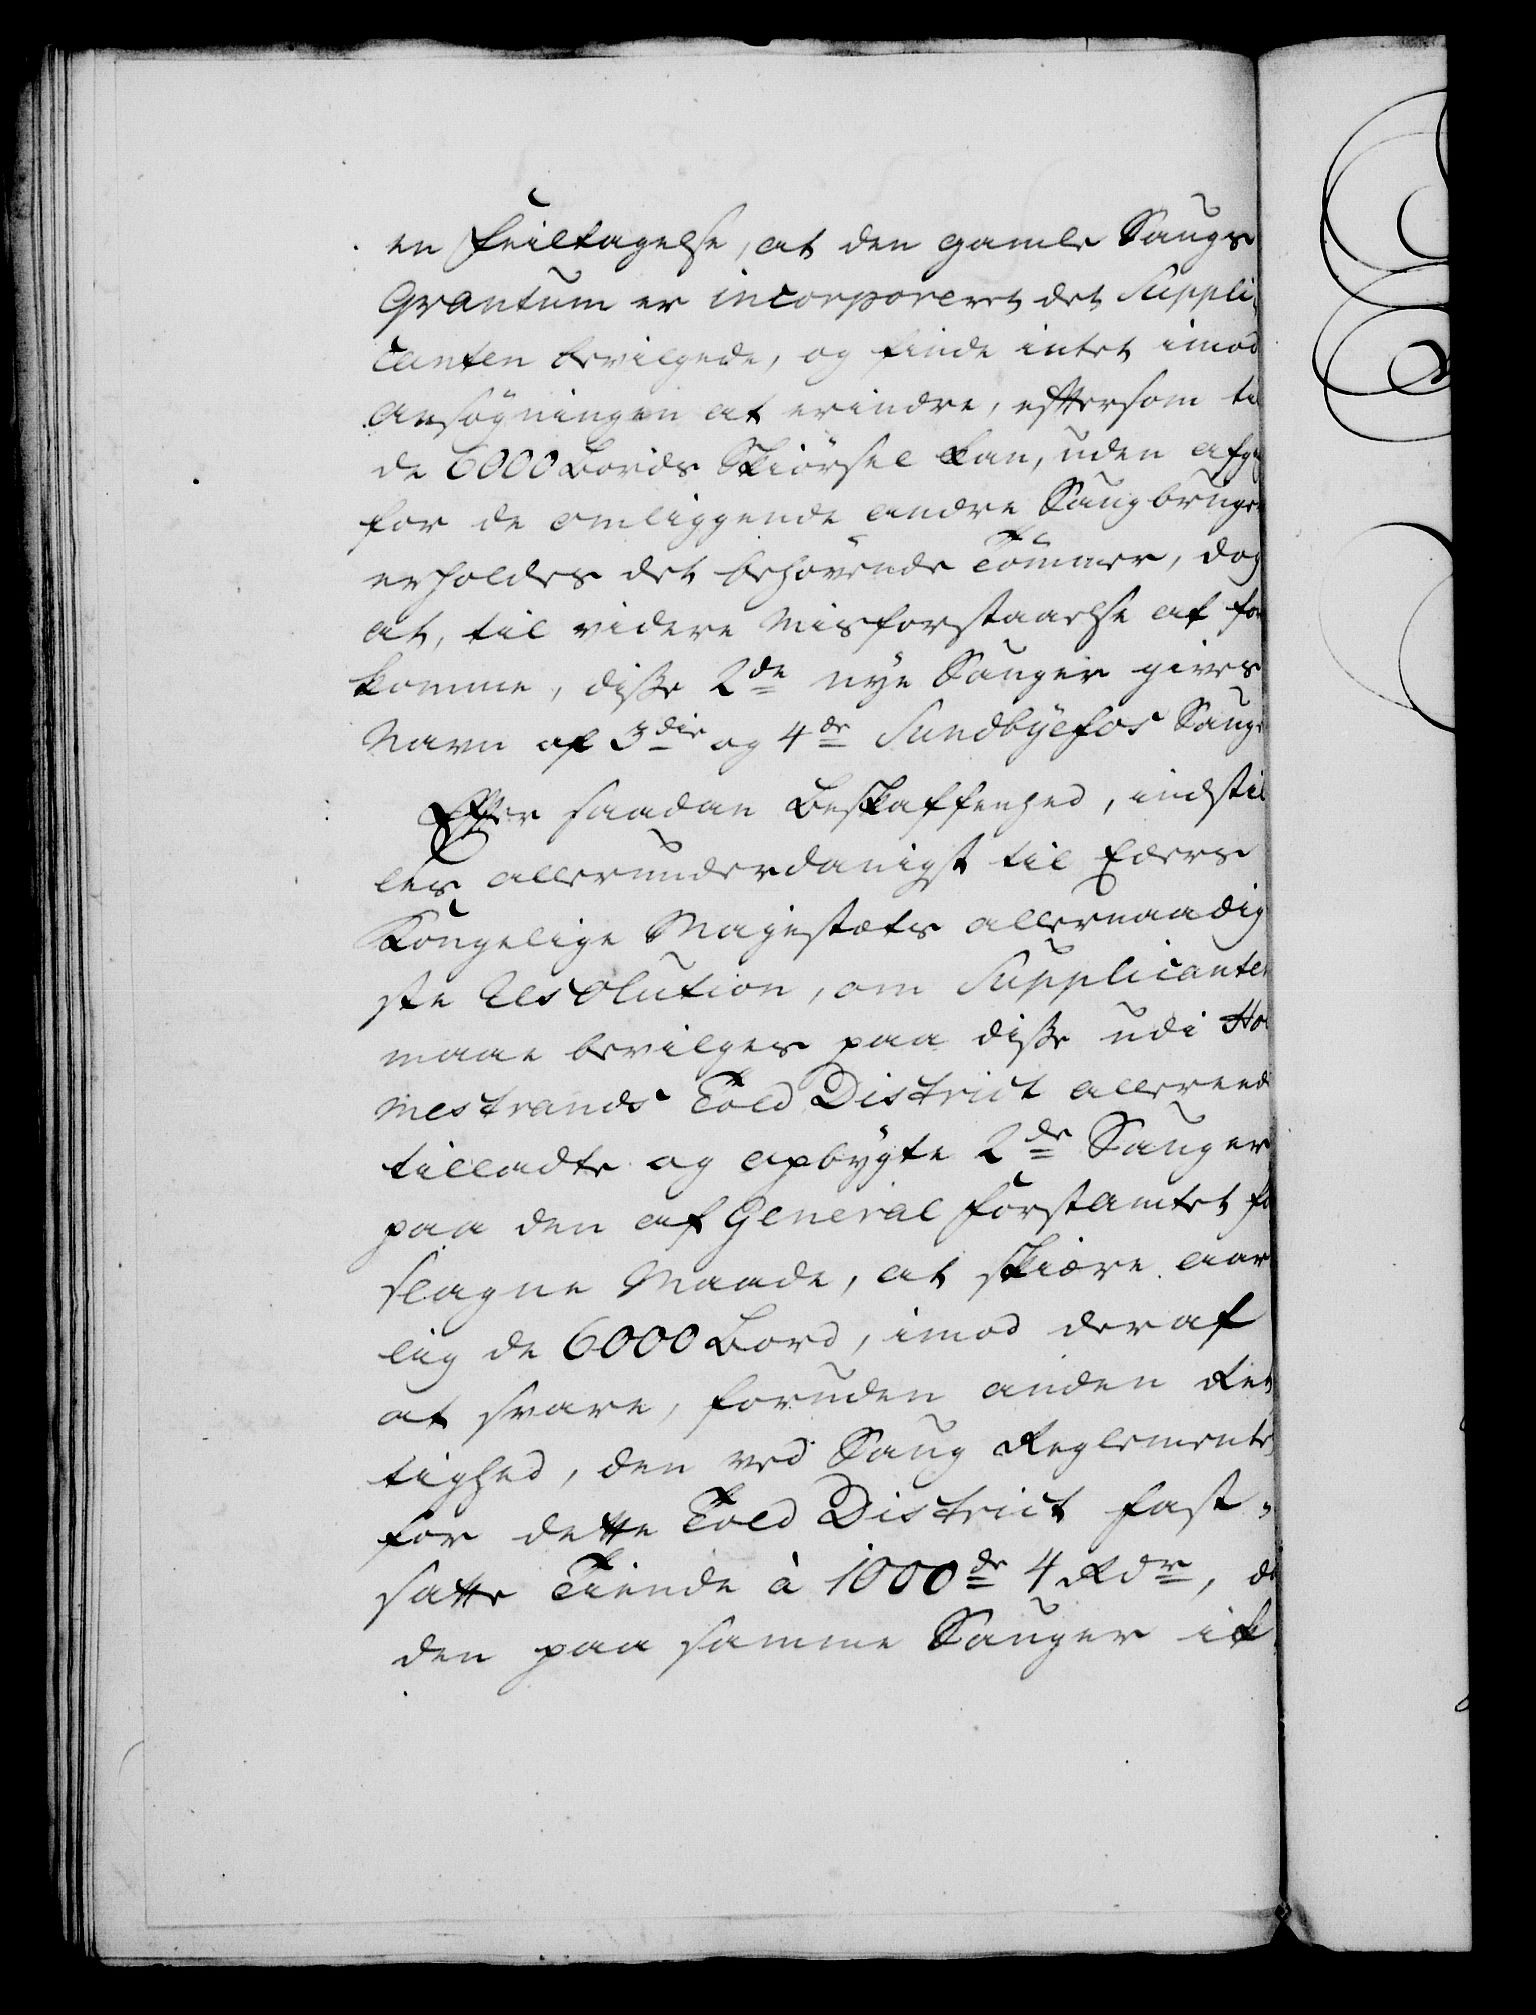 en Feiltagelse, at den gamle Saugs
Qvantum er incorporeret det Suppli-
canten bevilgede, og finde intet imod
Ansøgningen at erindre, eftersom til
de 6000 Bords Skiørsel kan, uden afgang
for de omliggende andre Saugbruger
erholdes det behøvende Tømmer, dog
at, til videre Misforstaaelse at for
komme, disse 2de nye Sauger gives
Navn af 3die og 4de Sundbyefos Sauge
Efter saadan Beskaffenhed, indstil
les allerunderdanigst til Eders
Kongelige Majestæts allernaadig
ste Resolution, om Supplicanten
maae bevilges paa disse udi Hol
mestrands Told District allerede
tilladte og opbygte 2de Sauger
paa den af General Forstamtet fore
slagne Maade, at skiære aar
lig de 6000 Bord, imod deraf
at svare, foruden anden Ret
tighed, den ved Saug Reglementet
for dette Told District fast-
satte Tiende à 1000de 4 Rdr, 
den paa samme Sauger ik